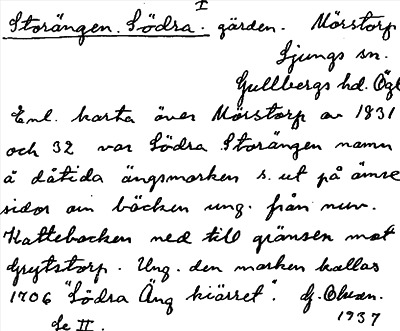 I
Storängen. Södra. gärden. Mörstorp
Ljungs sn.
Gullbergs hd. Ögl
Enl. karta över Mörstorp av 1831
och 32 var Södra Storängen namn
å dåtida ängsmarken s. ut på ömse
sidor om bäcken ung. från nuv.
Kattebacken ned till gränsen mot
Grytstorp. Ung. den marken kallas
1706 "Södra Äng kiärret". G. Olsson.
Se II. 1937